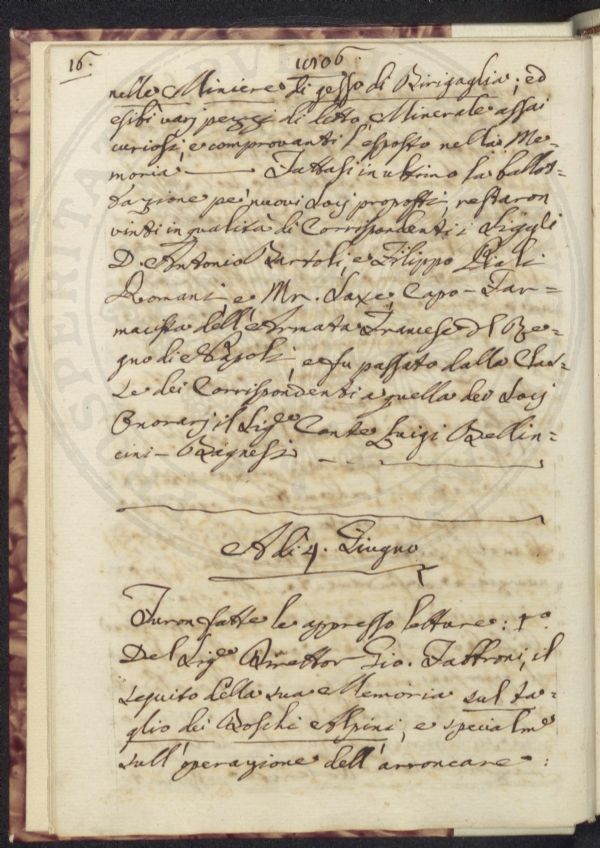 16. 1806.
nelle Miniere di gesso di Birigaglia; ed
esibì varj pezzi di detto Minerale assai
curiosi, e comprovanti l'esposto nella Me=
moria — Fattasi in ultimo la ballot=
tazione pe' nuovi Socj proposti, restaron
vinti in qualità di Corrispondenti i Sigg.li
D. Antonio Bartoli, e Filippo
Romani, e Mr. Laxe, Capo-Far=
macista dell'Armata Francese del Re=
gno di Napoli, e fu passato dalla Clas=
se dei Corrispondenti a quella dei Socj
Onorarj il Sig.e Conte Luigi Bellin=
cini-Bagnesi
A dì 4. Giugno
Furon fatte le appresso letture: 1.°
Del Sig.e Direttor Gio. Fabbroni, il
seguito della sua Memoria sul ta=
glio dei Boschi Alpini, e specialm.e
sull'operazione dell'arroncare: